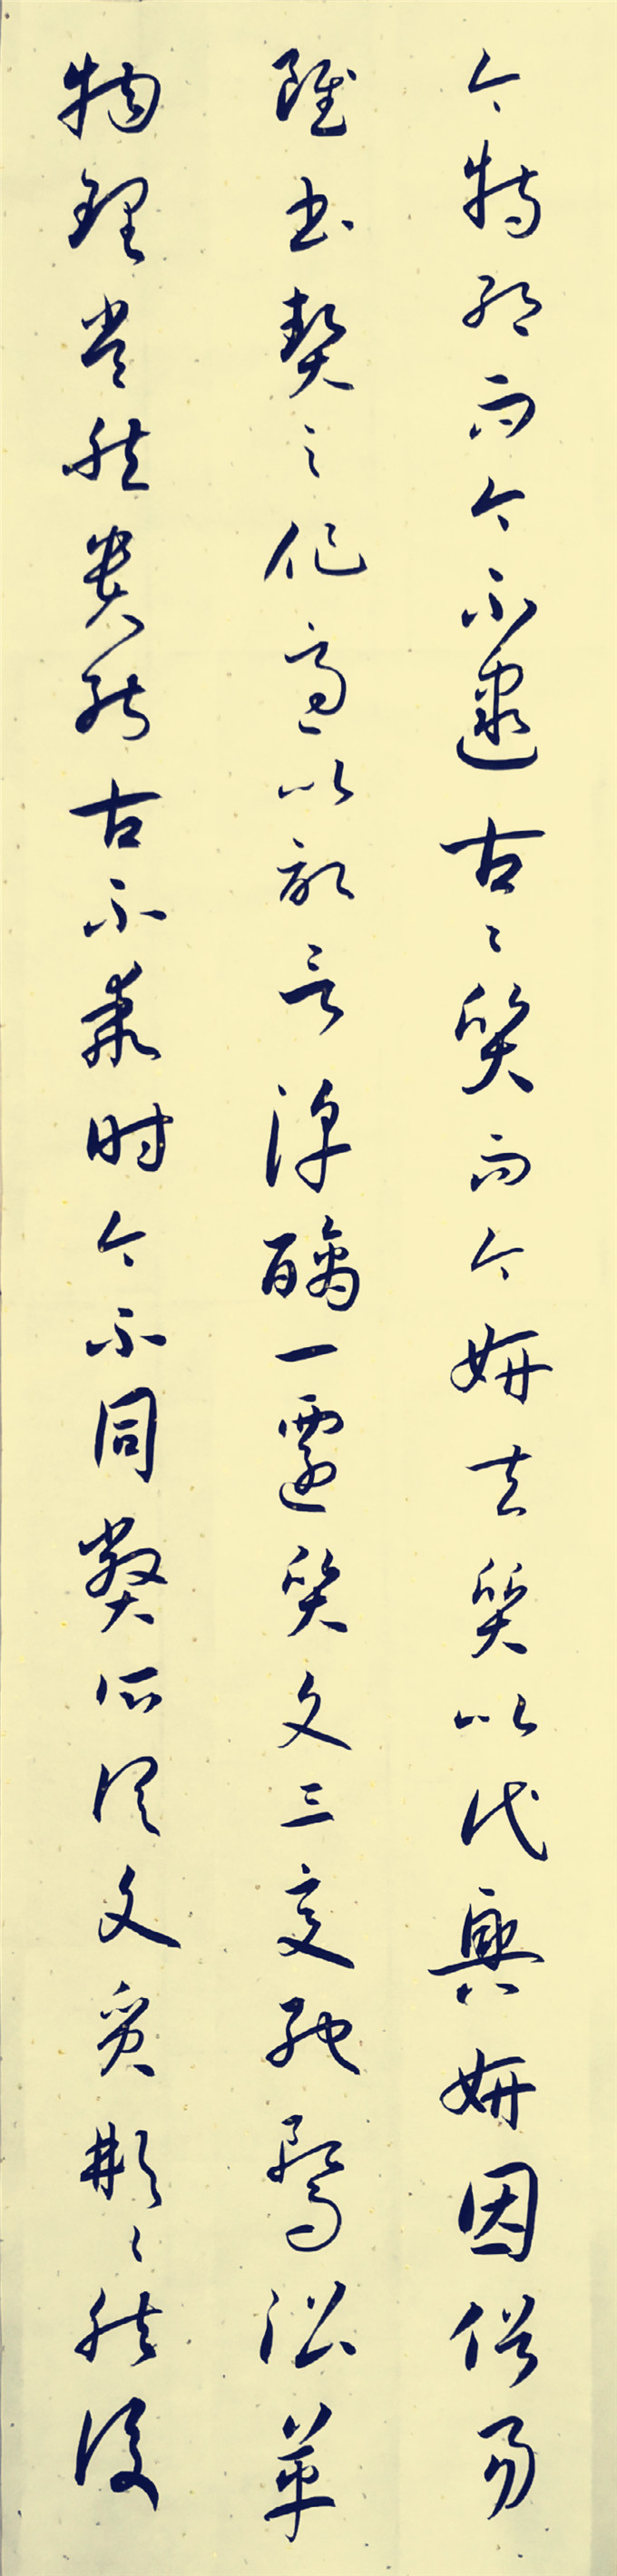 今特絕而今不逮古々質而今妍夫質以代興妍因俗易
雖書契之作適以記言淳醨一遷質文三變馳騖沿革
物理常然貴能古不乖時今不同弊所謂文質彬々然後